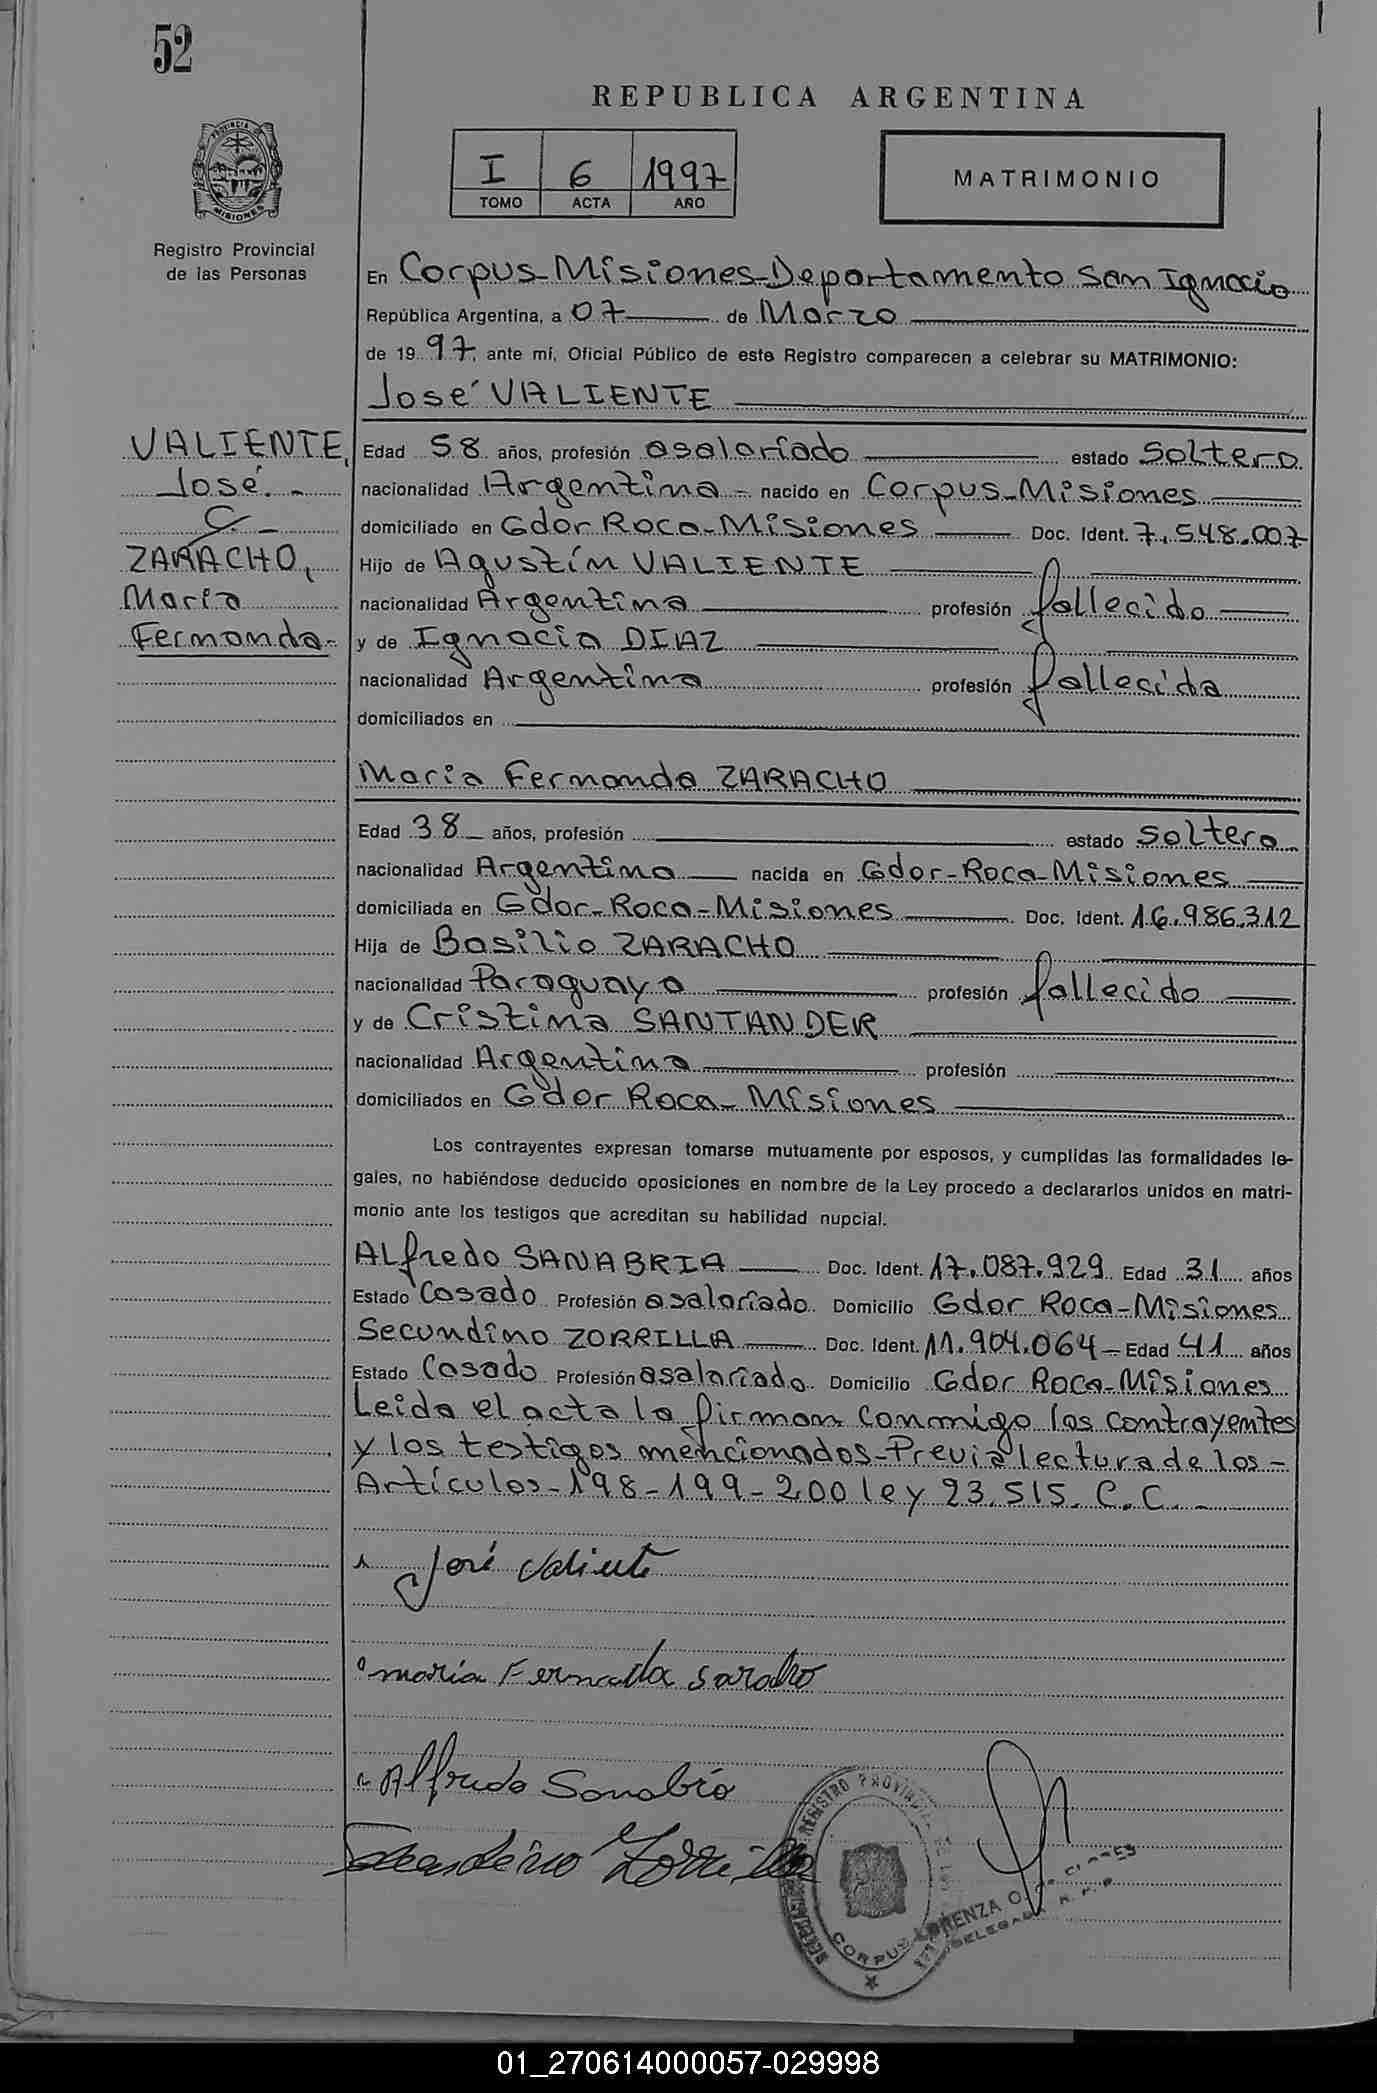 52
REPUBLICA ARGENTINA
PROVINCIA DE MISIONES
I 6 1997
TOMO ACTA AÑO
MATRIMONIO
Registro Provincial
de las Personas
VALIENTE,
José.-
C-
ZARACHO,
María
Fernanda-
En Corpus-Misiones-Departamento San Ignacio
República Argentina, a 07 de Marzo
de 1997, ante mí, Oficial Público de este Registro comparecen a celebrar su MATRIMONIO:
José VALIENTE
Edad 58 años, profesión asalariado estado Soltero
nacionalidad Argentina - nacido en Corpus-Misiones
domiciliado en Gdor Roca-Misiones Doc. Ident. 7.548.007
Hijo de Agustín VALIENTE
nacionalidad Argentina profesión fallecido
y de Ignacia DIAZ
nacionalidad Argentina profesión fallecida
domiciliados en
Maria Fernanda ZARACHO
Edad 38 años, profesión estado Soltera
nacionalidad Argentina nacida en Gdor-Roca-Misiones
domiciliada en Gdor-Roca-Misiones Doc. Ident. 16.986.312
Hija de Basilio ZARACHO
nacionalidad Paraguaya profesión fallecido
y de Cristina SANTANDER
nacionalidad Argentina profesión
domiciliados en Gdor Roca-Misiones
Los contrayentes expresan tomarse mutuamente por esposos, y cumplidas las formalidades le-
gales, no habiéndose deducido oposiciones en nombre de la Ley procedo a declararlos unidos en matri-
monio ante los testigos que acreditan su habilidad nupcial.
ALfredo SANABRIA Doc. Ident. 17.087.929 Edad 31 años
Estado Casado Profesión asalariado Domicilio Gdor Roca-Misiones
Secundino ZORRILLA Doc. Ident. 11.904.064 Edad 41 años
Estado Casado Profesión asalariado Domicilio Gdor Roca-Misiones
Leida el acta la firman conmigo los contrayentes
y los testigos mencionados-Previa lectura de los-
Artículos-198-199-200 ley 23.515. C.C.-
José Valiente
maria Fernada saracho
Alfredo Sanabria
Secundino Zorrilla
REGISTRO PROVINCIAL
CORPUS
LORENZA
DELEGADA
01_270614000057-029998